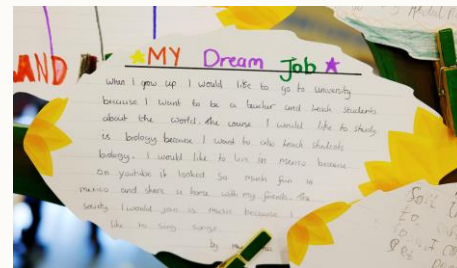 AND
MY Dream Job
when I grow up I would like to go to university
because I want to be a teacher and teach students
about the world. the course I would like to study
is biology because I want to also teach students
biology. I would like to live in mexico because
on youtube it looked so much fun in
mexico and share a home with my friends. the
society I would join is music because I
like to sing songs.
by